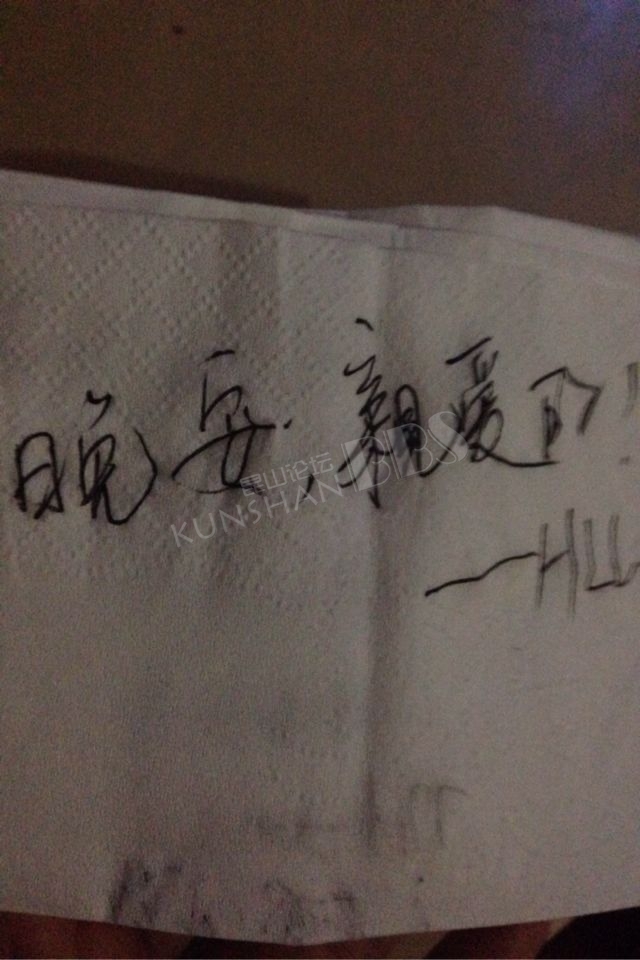 晚安,親爱的!
—HLL
昆山论坛
KUNSHAN BBS